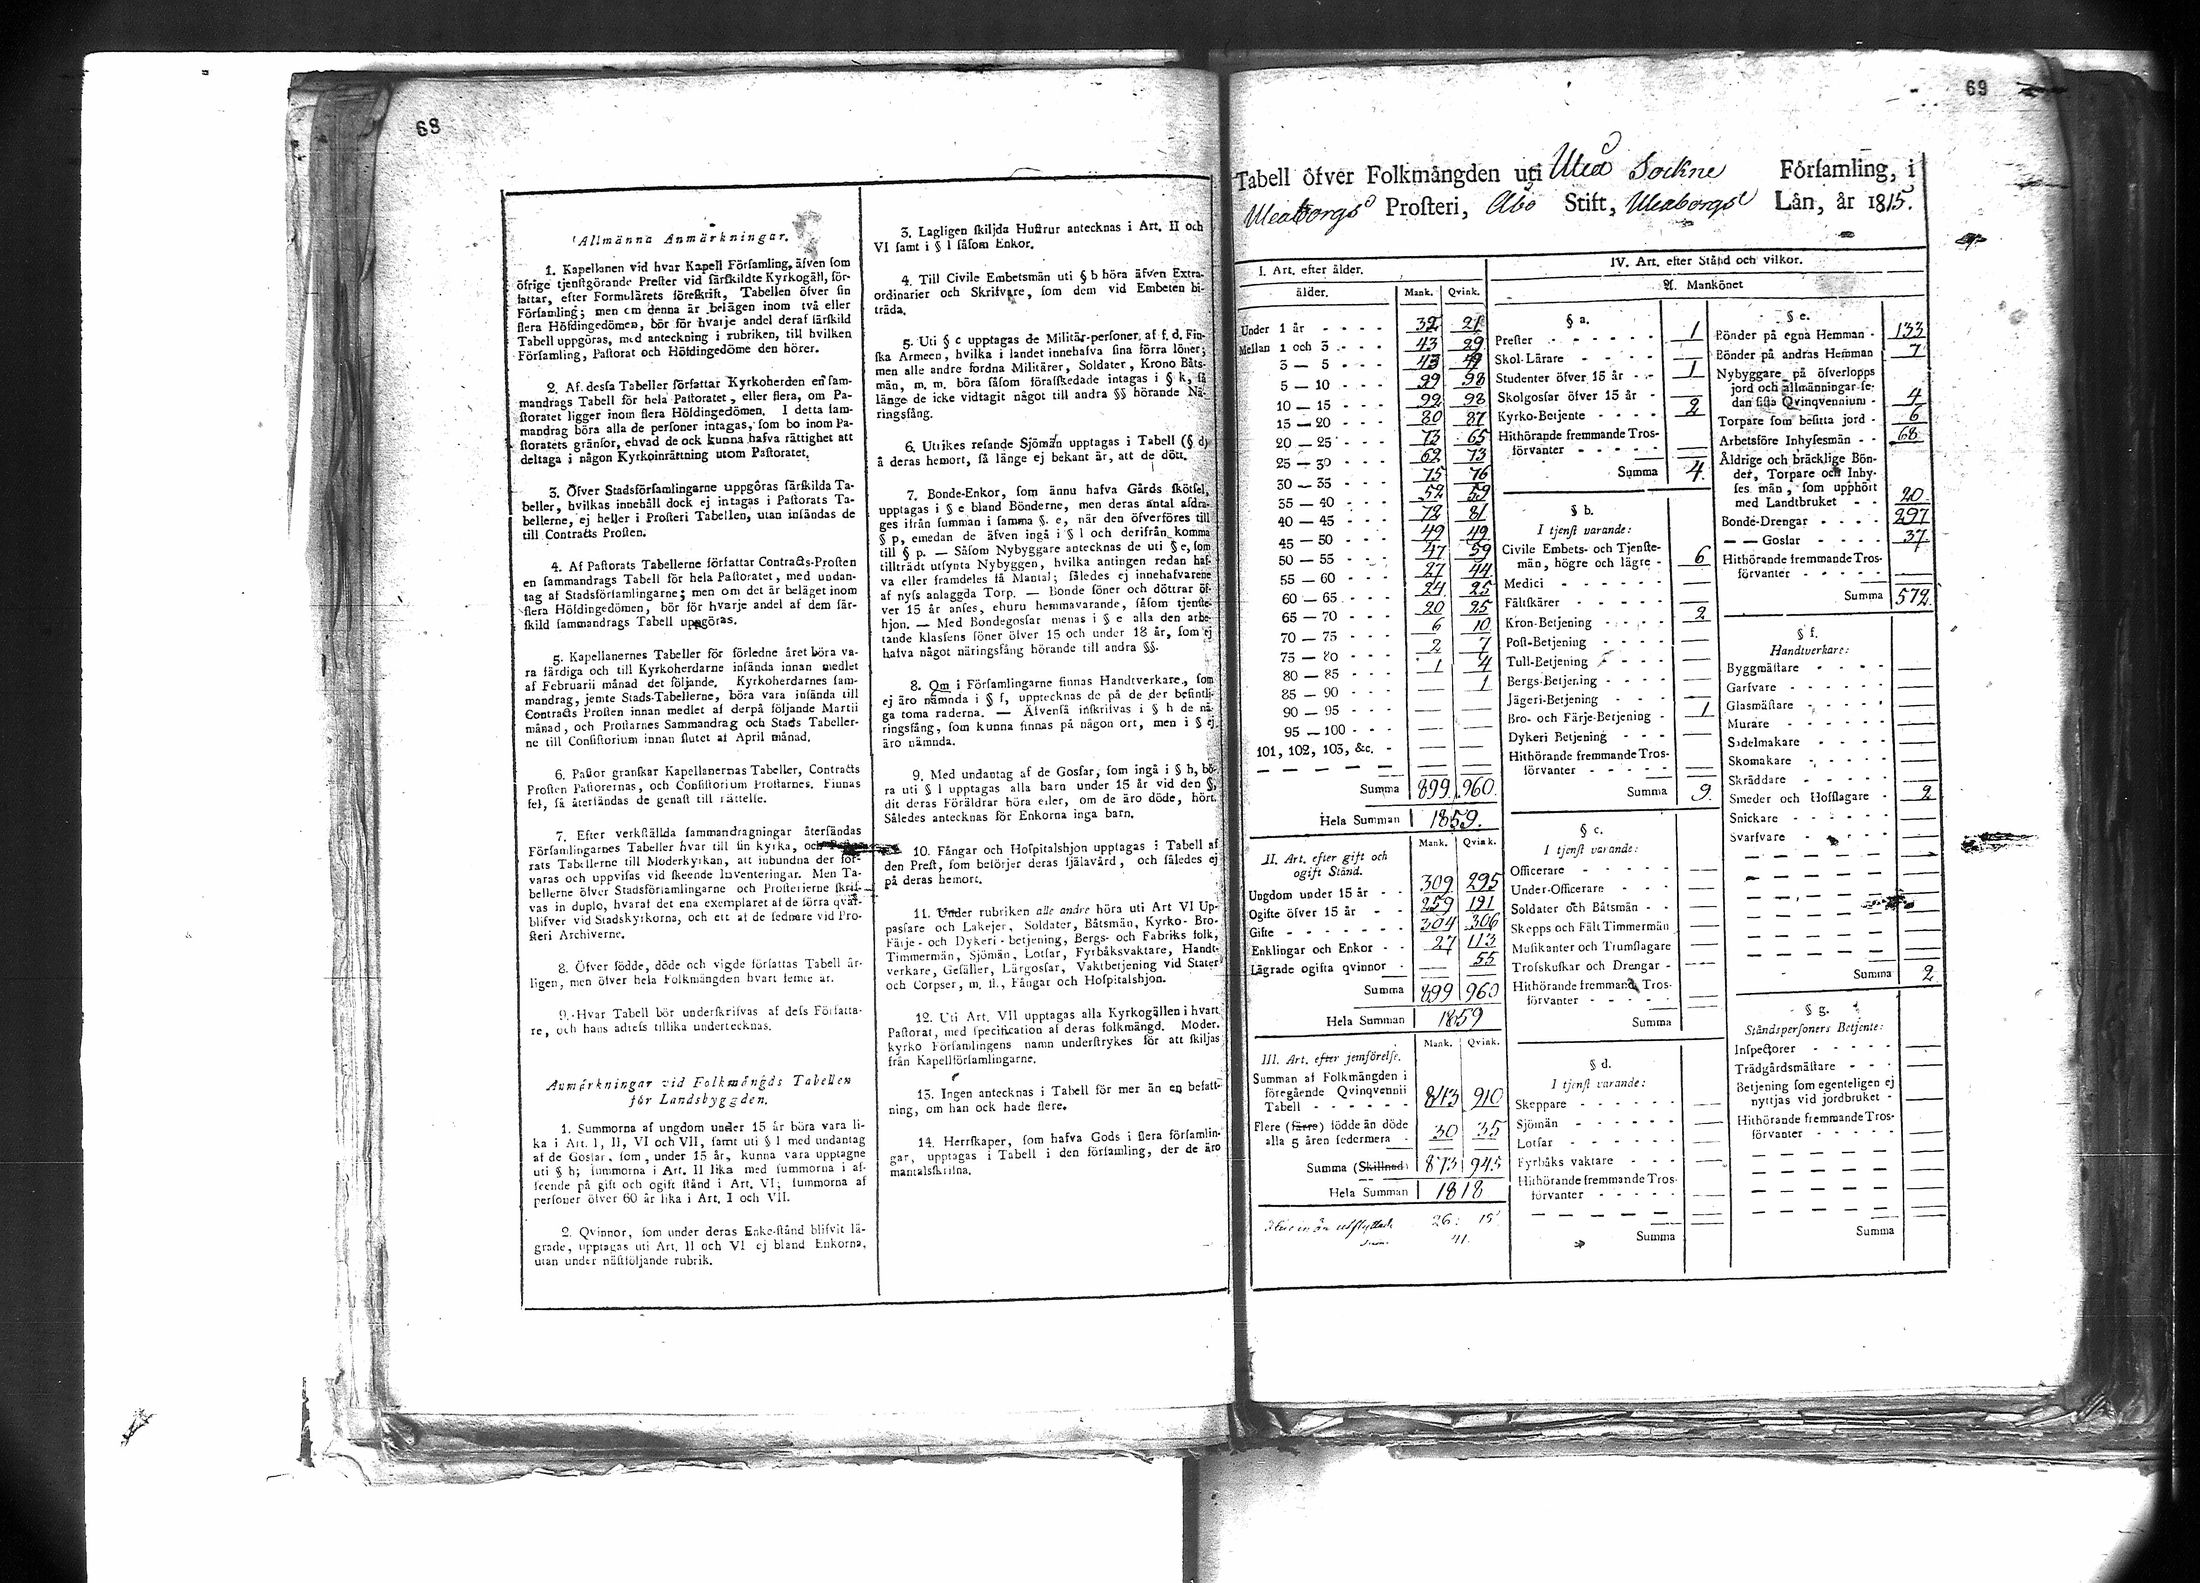 68
Allmänna Anmärkningar.
1. Kapellanen vid hvar Kapell Förſamling, äfven ſom
öfrige tjenſtgörande Preſter vid ſärſkildte Kyrkogäll, för-
fattar, efter Formulärets föreſkrift, Tabellen öfver ſin
Förſamling; men om denna är belägen inom två eller
flera Höfdingedömen, bör för hvarje andel deraf ſärſkild
Tabell uppgöras, med anteckning i rubriken, till hvilken
Förſamling, Paſtorat och Höfdingedöme den hörer.
2. Af deſſa Tabeller författar Kyrkoherden en ſam-
mandrags Tabell för hela Paſtoratet, eller flera, om Pa-
ſtoratet ligger inom flera Höfdingedömen. I detta ſam-
mandrag böra alla de perſoner intagas, ſom bo inom Pa-
ſtoratets gränſor, ehvad de ock kunna hafva rättighet att
deltaga i någon Kyrkoinrättning utom Paſtoratet.
3. Öfver Stadsförſamlingarne uppgöras ſärſkilda Ta-
beller, hvilkas innehåll dock ej intagas i Paſtorats Ta-
bellerne, ej heller i Proſteri Tabellen, utan inſändas de
till Contracts Proſten.
4. Af Paſtorats Tabellerne författar Contracts-Proſten
en ſammandrags Tabell för hela Paſtoratet, med undan-
tag af Stadsförſamlingarne; men om det är beläget inom
flera Höfdingedömen, bör för hvarje andel af dem ſär-
ſkild ſammandrags Tabell uppgöras.
5. Kapellanernes Tabeller för förledne året böra va-
ra färdiga och till Kyrkoherdarne inſända innan medlet
af Februarii månad det följande. Kyrkoherdarnes ſam-
mandrag, jemte Stads-Tabellerne, böra vara inſända till
Contracts Proſten innan medlet af derpå följande Martii
månad, och Proſtarnes Sammandrag och Stads Tabeller-
ne till Conſiſtorium innan ſlutet af April månad.
6. Paſtor granſkar Kapellanernas Tabeller, Contracts
Proſten Paſtorernas, och Conſiſtorium Proſtarnes. Finnas
fel, ſå återſändas de genaſt till rättelſe.
7. Efter verkſtällda ſammandragningar återſändas
Förſamlingarnes Tabeller hvar till ſin kyrka, och Paſto-
rats Tabellerne till Moderkyrkan, att inbundna der för-
varas och uppviſas vid ſkeende Inventeringar. Men Ta-
bellerne öfver Stadsförſamlingarne och Proſterierne ſkrif-
vas in duplo, hvaraf det ena exemplaret af de förra qvar-
blifver vid Stadskyrkorna, och ett af de ſednare vid Pro-
ſteri Archiverne.
8. Öfver födde, döde och vigde författas Tabell år-
ligen, men öfver hela Folkmängden hvart femte år.
9. Hvar Tabell bör underſkrifvas af deſs Författa-
re, och hans adreſs tillika undertecknas.
Anmärkningar vid Folkmängds Tabellen
för Landsbyggden.
1. Summorna af ungdom under 15 år böra vara li-
ka i Art. I, II, VI och VII, ſamt uti § l med undantag
af de Goſſar, ſom, under 15 år, kunna vara upptagne
uti § h; ſummorna i Art. II lika med ſummorna i af-
ſeende på gift och ogift ſtånd i Art. VI; ſummorna af
perſoner öfver 60 år lika i Art. I och VII.
2. Qvinnor, ſom under deras Enke-ſtånd blifvit lä-
grade, upptagas uti Art. II och VI ej bland Enkorna,
utan under näſtföljande rubrik.
3. Lagligen ſkiljda Huſtrur antecknas i Art. II och
VI ſamt i § l ſåſom Enkor.
4. Till Civile Embetsmän uti § b höra äfven Extra-
ordinarier och Skrifvare, ſom dem vid Embeten bi-
träda.
5. Uti § c upptagas de Militär-perſoner af f. d. Fin-
ſka Armeen, hvilka i landet innehafva ſina förra löner;
men alle andre fordna Militärer, Soldater, Krono Båts-
män, m. m. böra ſåſom förafſkedade intagas i § k, ſå
länge de icke vidtagit något till andra §§ hörande Nä-
ringsfång.
6. Utrikes reſande Sjömän upptagas i Tabell (§ d)
å deras hemort, ſå länge ej bekant är, att de dött.
7. Bonde-Enkor, ſom ännu hafva Gårds ſkötſel,
upptagas i § e bland Bönderne, men deras antal afdra-
ges ifrån ſumman i ſamma §. e, när den öfverföres till
§ p, emedan de äfven ingå i § l och derifrån komma
till § p. — Såſom Nybyggare antecknas de uti § e, ſom
tillträdt utſynta Nybyggen, hvilka antingen redan haf-
va eller framdeles få Mantal; ſåledes ej innehafvarene
af nyſs anlaggda Torp. — Bonde ſöner och döttrar öf-
ver 15 år anſes, ehuru hemmavarande, ſåſom tjenſte-
hjon. — Med Bondegoſſar menas i § e alla den arbe-
tande klaſſens ſöner öfver 15 och under 18 år, ſom ej
hafva något näringsfång hörande till andra §§.
8. Om i Förſamlingarne finnas Handtverkare, ſom
ej äro nämnda i § f, upptecknas de på de der befintli-
ga toma raderna. — Äfvenſå inſkrifvas i § h de nä-
ringsfång, ſom kunna finnas på någon ort, men i § ej
äro nämnda.
9. Med undantag af de Goſſar, ſom ingå i § h, bö-
ra uti § l upptagas alla barn under 15 år vid den §,
dit deras Föräldrar höra eller, om de äro döde, hört.
Således antecknas för Enkorna inga barn.
10. Fångar och Hoſpitalshjon upptagas i Tabell af
den Preſt, ſom beförjer deras ſjälavård, och ſåledes ej
på deras hemort.
11. Under rubriken alle andre höra uti Art VI Up-
paſſare och Lakejer, Soldater, Båtsmän, Kyrko- Bro-
Färje- och Dykeri-betjening, Bergs- och Fabriks folk,
Timmermän, Sjömän, Lotſar, Fyrbåksvaktare, Handt-
verkare, Geſäller, Lärgoſſar, Vaktbetjening vid Stater
och Corpſer, m. fl., Fångar och Hoſpitalshjon.
12. Uti Art. VII upptagas alla Kyrkogällen i hvart
Paſtorat, med ſpecification af deras folkmängd. Moder-
kyrko Förſamlingens namn underſtrykes för att ſkiljas
från Kapellförſamlingarne.
13. Ingen antecknas i Tabell för mer än en befatt-
ning, om han ock hade flere.
14. Herrſkaper, ſom hafva Gods i flera förſamlin-
gar, upptagas i Tabell i den förſamling, der de äro
mantalsſkrifna.
69
Tabell öfver Folkmängden uti Uleå Sockne Förſamling, i
Uleaborgs Proſteri, Åbo Stift, Uleaborgs Län, år 1815.
I. Art. efter ålder.
ålder. Mank. Qvink.
Under 1 år - - - - 32 21
Mellan 1 och 3 - - - 43 29
3 — 5 - - - - 43 49
5 — 10 - - - 99 98
10 — 15 - - - 92 98
15 — 20 - - - 80 87
20 — 25 - - - 73 65
25 — 30 - - - 62 73
30 — 35 - - - 75 76
35 — 40 - - - 52 59
40 — 45 - - - 72 81
45 — 50 - - - 49 49
50 — 55 - - - 47 59
55 — 60 - - - 27 44
60 — 65 - - - 24 25
65 — 70 - - - 20 25
70 — 75 - - - 6 10
75 — 80 - - - 2 7
80 — 85 - - - 1 4
85 — 90 - - - — 1
90 — 95 - - - — —
95 — 100 - - - — —
101, 102, 103, &c. - — —
Summa 899. 960.
Hela Summan 1859.
Mank. Qvink.
II. Art. efter gift och
ogift Stånd.
Ungdom under 15 år - - 309 295
Ogifte öfver 15 år - - 259 191
Gifte - - - - - - 304 306
Enklingar och Enkor - - 27 113
Lägrade ogifta qvinnor - — 55
Summa 899 960
Hela Summan 1859
Mank. Qvink.
III. Art. efter jemförelſe.
Summan af Folkmängden i
föregående Qvinqvennii
Tabell - - - - - - 843 910
Flere (färre) födde än döde
alla 5 åren ſedermera - 30 35
Summa (Skillnad) 873 945
Hela Summan 1818
Flere in än utflyttade 26. 15
41.
IV. Art. efter Stånd och vilkor.
A. Mankönet
§ a.
Preſter - - - - - - 1
Skol-Lärare - - - - —
Studenter öfver 15 år - - 1
Skolgoſſar öfver 15 år - —
Kyrko-Betjente - - - - 2
Hithörande fremmande Tros-
förvanter - - - - - —
Summa 4.
§ b.
I tjenſt varande:
Civile Embets- och Tjenſte-
män, högre och lägre - 6
Medici - - - - - - —
Fältſkärer - - - - - —
Kron-Betjening - - - - 2
Poſt-Betjening - - - - —
Tull-Betjening - - - - —
Bergs-Betjening - - - - —
Jägeri-Betjening - - - —
Bro- och Färje-Betjening - 1
Dykeri Betjening - - - —
Hithörande fremmande Tros-
förvanter - - - - - —
Summa 9.
§ c.
I tjenſt varande:
Officerare - - - - - —
Under-Officerare - - - —
Soldater och Båtsmän - - —
Skepps och Fält Timmermän —
Muſikanter och Trumſlagare —
Troſskuſkar och Drengar - —
Hithörande fremmande Tros-
förvanter - - - - - —
Summa
§ d.
I tjenſt varande:
Skeppare - - - - - - —
Sjömän - - - - - - —
Lotſar - - - - - - —
Fyrbåks vaktare - - - —
Hithörande fremmande Tros-
förvanter - - - - - —
Summa
§ e.
Bönder på egna Hemman - 133
Bönder på andras Hemman 7
Nybyggare på öfverlopps
jord och allmänningar ſe-
dan ſiſta Qvinqvennium - 4
Torpare ſom beſitta jord - 6
Arbetsföre Inhyſesmän - - 68
Åldrige och bräcklige Bön-
der, Torpare och Inhy-
ſes män, ſom upphört
med Landtbruket - - 20
Bonde-Drengar - - - - 297
— — Goſſar - - - - 37
Hithörande fremmande Tros-
förvanter - - - - - —
Summa 572
§ f.
Handtverkare:
Byggmäſtare - - - - —
Garfvare - - - - - —
Glasmäſtare - - - - - —
Murare - - - - - - —
Sadelmakare - - - - —
Skomakare - - - - - —
Skräddare - - - - - —
Smeder och Hofſlagare - 2
Snickare - - - - - - —
Svarfvare - - - - - —
Summa 2
§ g.
Ståndsperſoners Betjente:
Inſpectorer - - - - - —
Trädgårdsmäſtare - - - —
Betjening ſom egenteligen ej
nyttjas vid jordbruket - —
Hithörande fremmande Tros-
förvanter - - - - - —
Summa